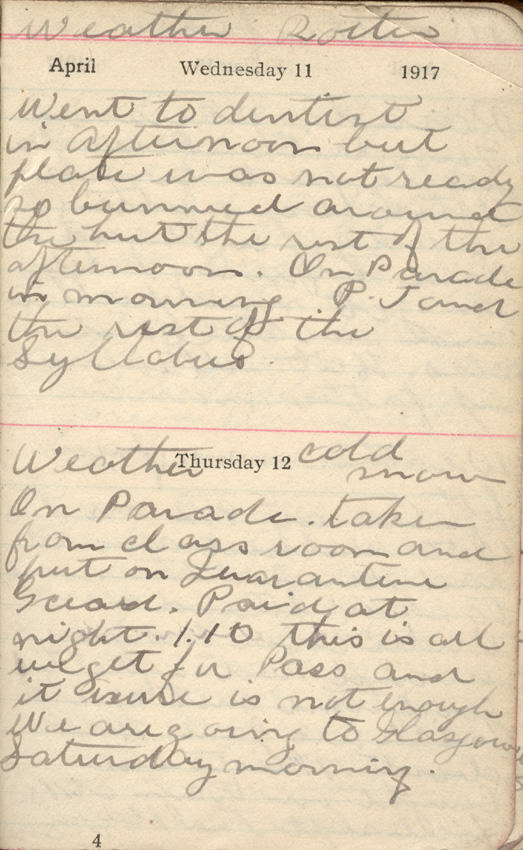 Weather Rotten
April Wednesday 11 1917
Went to dentist
in afternoon but
plate was not ready
so bummed around
the hut the rest of the
afternoon. On Parade
in morning P.T and
the rest of the
Syllabus.
Weather Thursday 12 cold
snow
On Parade. taken
from class room and
put on Quarantine
Guard. Paid at
night. 1.10 this is all
we get for Pass and
it is not enough
We are going to Glasgow
Saturday morning.
4